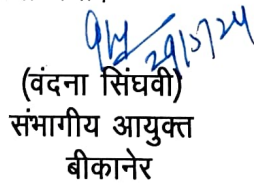 29/5/24
(वंदना सिंघवी)
संभागीय आयुक्त
बीकानेर